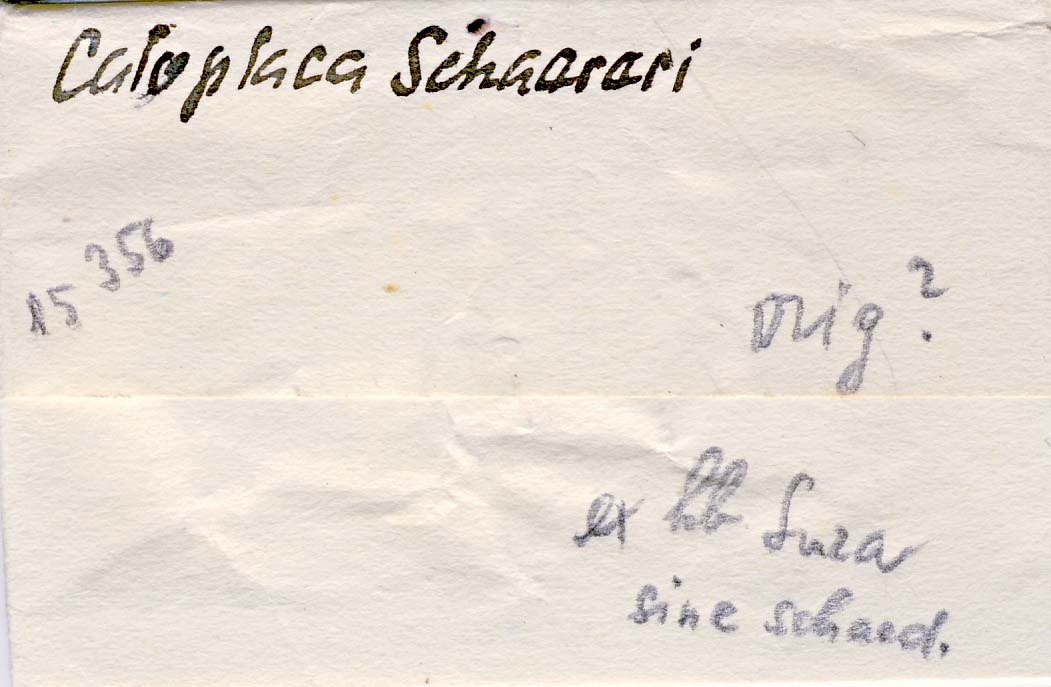 Caloplaca Schaereri
15 356
orig?
ex hb Suza
sine sched.